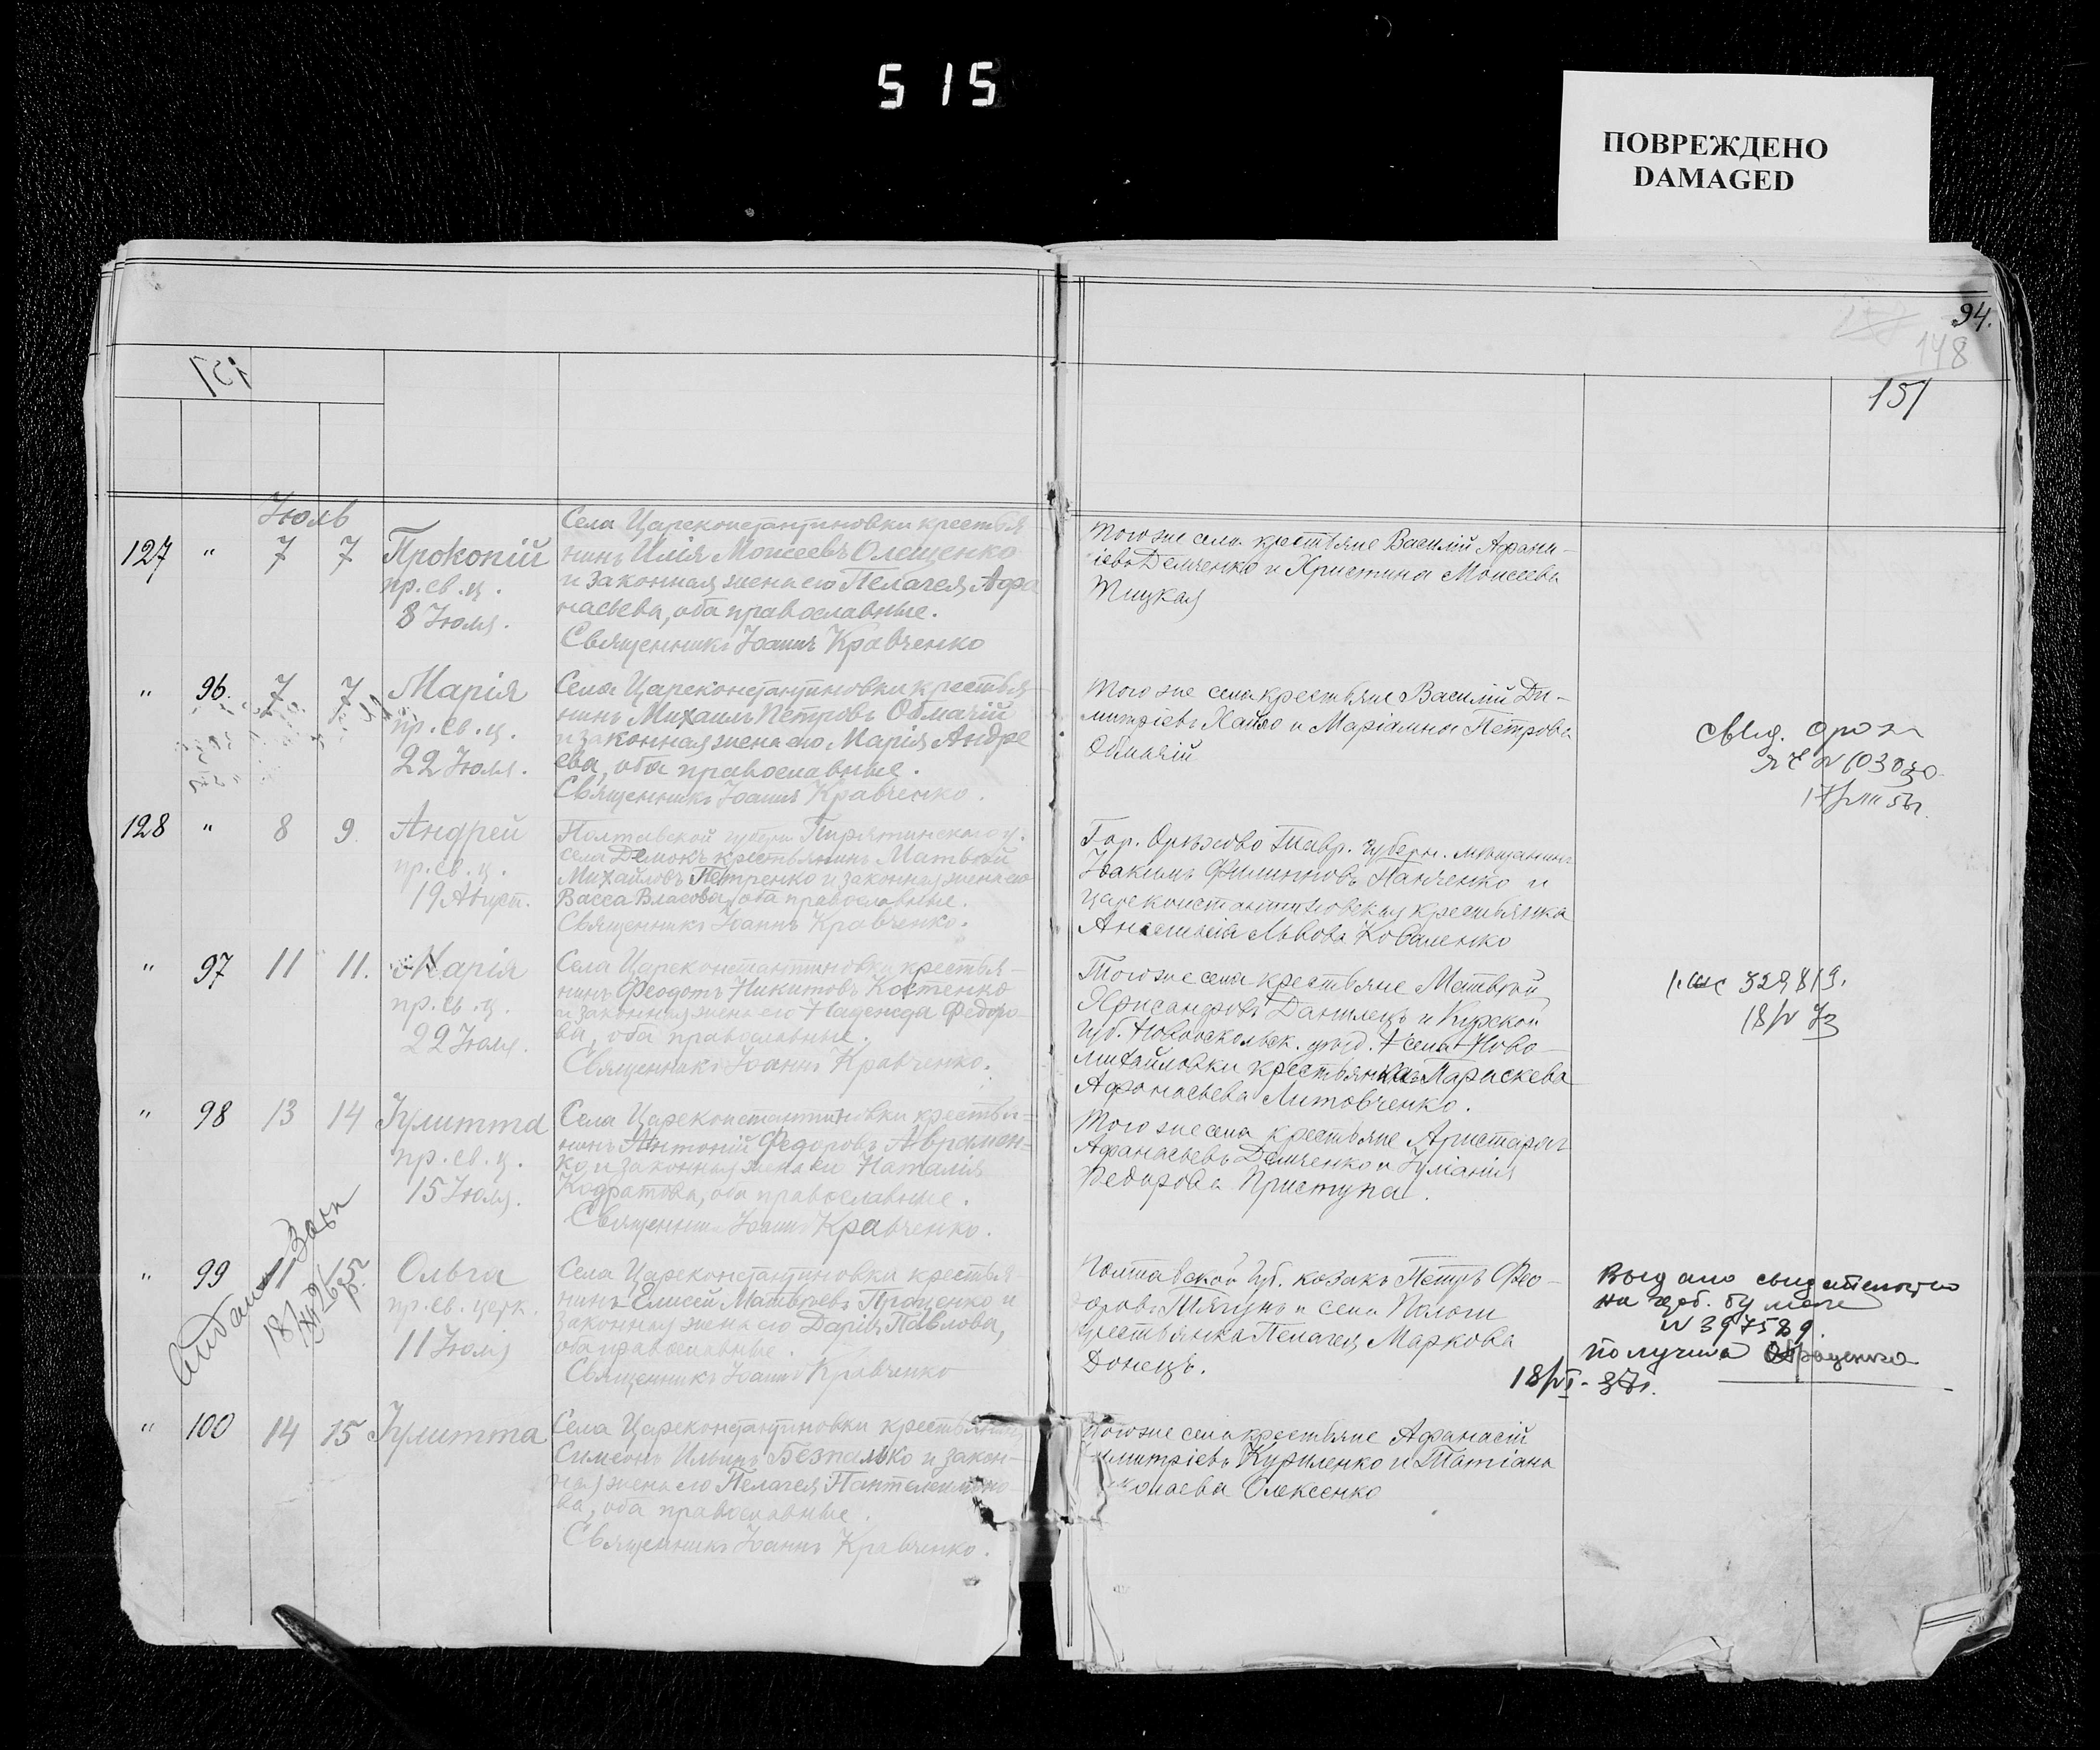 515
ПОВРЕЖДЕНО
DAMAGED
94.
148
151
Іюль
127 " 7 7
Прокопій
пр. св. ц.
8 Іюля.
Села Цареконстантиновки крестья
нинъ Илія Моисеевъ Олещенко
и законная жена его Пелагея Афа
насьева, оба православные.
Священникъ Іоаннъ Кравченко
Того же села крестьяне Василій Афана-
сіевъ Демченко и Христина Моисеева
Тицкая
" 96. 7 7
Марія
пр. св. ц.
22 Іюля.
Села Цареконстантиновки крестья
нинъ Михаилъ Петровъ Обмачій
и законная жена его Марія Андре
ева, оба православные.
Священникъ Іоаннъ Кравченко.
Того же села крестьяне Василій Ди-
митріевъ и Маріамна Петрова
Обмачій
128 " 8 9
Андрей
пр. св. ц.
19 Август.
Полтавской губерн Пирятинскаго у.
села Демокъ крестьянинъ Матвѣй
Михайловъ Петренко и законная жена его
Васса Власова, оба православные.
Священникъ Іоаннъ Кравченко.
Гор. Орѣхово Тавр. губерн. мѣщанинъ
Іоакимъ Филипповъ Панченко и
цареконстантиновская крестьянка
Анастасія Львова Коваленко
" 97 11 11.
Марія
пр. св. ц.
22 Іюля.
Села Цареконстантиновки крестья-
нинъ Феодотъ Никитовъ Костенко
и законная жена его Надежда Федоро-
ва, оба православные.
Священникъ Іоаннъ Кравченко.
Того же села крестьяне Матвѣй
Хрисанфовъ Данилецъ и Курской
губ. Новооскольск. уѣзд. села Ново-
михайловки крестьянка Параскева
Афонасьева Литовченко.
329819.
18/V
" 98 13 14
Іулитта
пр. св. ц.
15 Іюля.
Села Цареконстантиновки крестья-
нинъ Антоній Федоровъ Авромен-
ко и законная жена его Наталія
Кодратова, оба православные.
Священникъ Іоаннъ Кравченко.
Того же села крестьяне Аристархъ
Афанасьевъ Демченко и Іуліанія
Федорова Приступа.
" 99
Ольга
пр. св. церк.
11 Іюля
Села Цареконстантиновки крестья
нинъ Елисей Матвѣевъ Проценко и
законная жена его Дарія Павлова,
оба православные.
Священникъ Іоаннъ Кравченко
Полтавской губ. козакъ Петръ Фео-
доровъ Тягунъ и села Пологи
крестьянка Пелагея Маркова
Донецъ.
Выдано свидетельство
на герб. бумаге
N 397589.
получила
18/VI- 37г.
" 100 14 15
Іулитта
Села Цареконстантиновки крестьянинъ
Симеонъ Ильинъ Безпалько и закон-
ная жена его Пелагея Пантелеимоно
ва, оба православные.
Священникъ Іоаннъ Кравченко.
Того же села крестьяне Афанасій
Димитріевъ Куриленко и Татіана
Олексенко